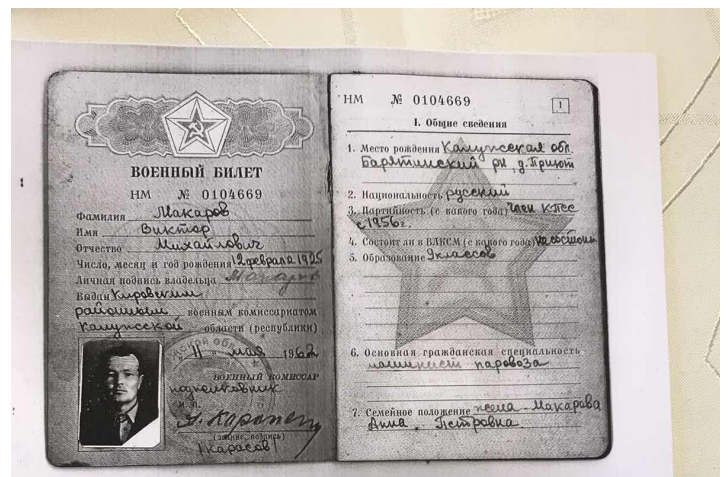 ВОЕННЫЙ БИЛЕТ
НМ № 0104669
Фамилия Макаров
Имя Виктор
Отчество Михайлович
Число, месяц и год рождения 12 февраля 1925
Личная подпись владельца Макаров
Выдан Кировским
районным военным комиссариатом
Калужской области (республики)
11 мая 1962
ВОЕННЫЙ КОМИССАР
подполковник
М. П.
(звание, подпись)
/Карасов/
НМ № 0104669 1
I. Общие сведения
1. Место рождения Калужская обл.
Барятинский рн, д. Приют
2. Национальность русский
3. Партийность (с какого года) Член КПСС
с 1956 г.
4. Состоит ли в ВЛКСМ (с какого года) не состоит
5. Образование 9 классов
6. Основная гражданская специальность
машинист паровоза
7. Семейное положение жена - Макарова
Анна Петровна